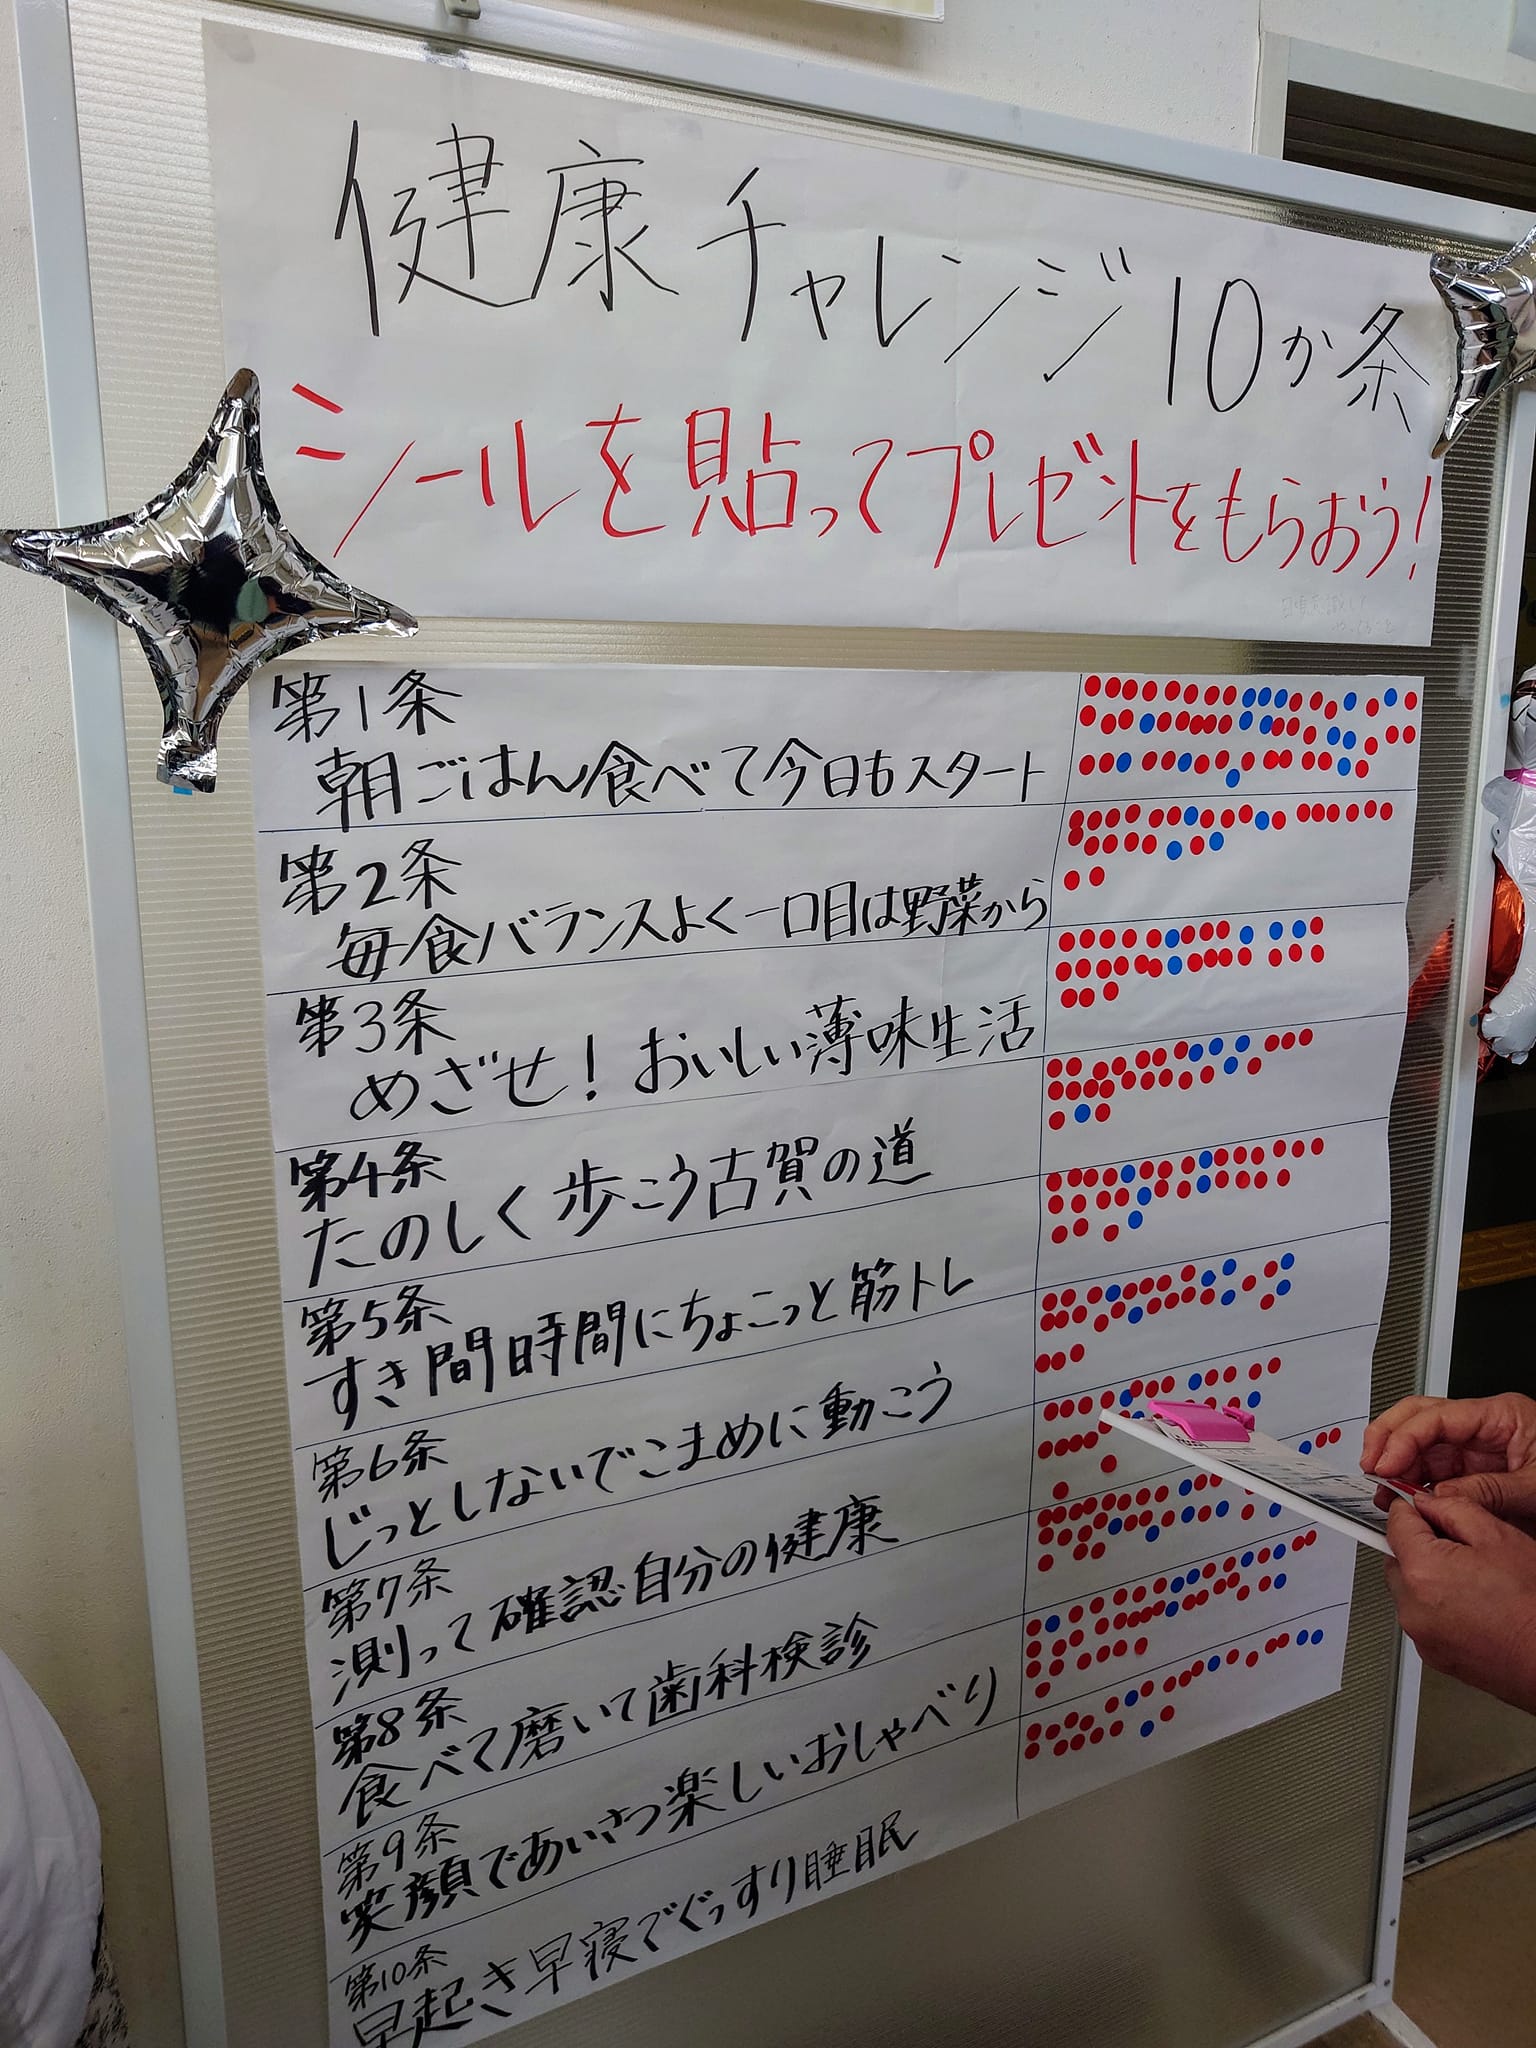 健康チャレンジ10か条
シールを貼ってプレゼントをもらおう!
第1条
朝ごはん食べて今日もスタート
第2条
毎食バランスよく一口目は野菜から
第3条
めざせ!おいしい薄味生活
第4条
たのしく歩こう古賀の道
第5条
すき間時間にちょこっと筋トレ
第6条
じっとしないでこまめに動こう
第7条
測って確認自分の健康
第8条
食べて磨いて歯科検診
第9条
笑顔であいさつ楽しいおしゃべり
第10条
早起き早寝でぐっすり睡眠